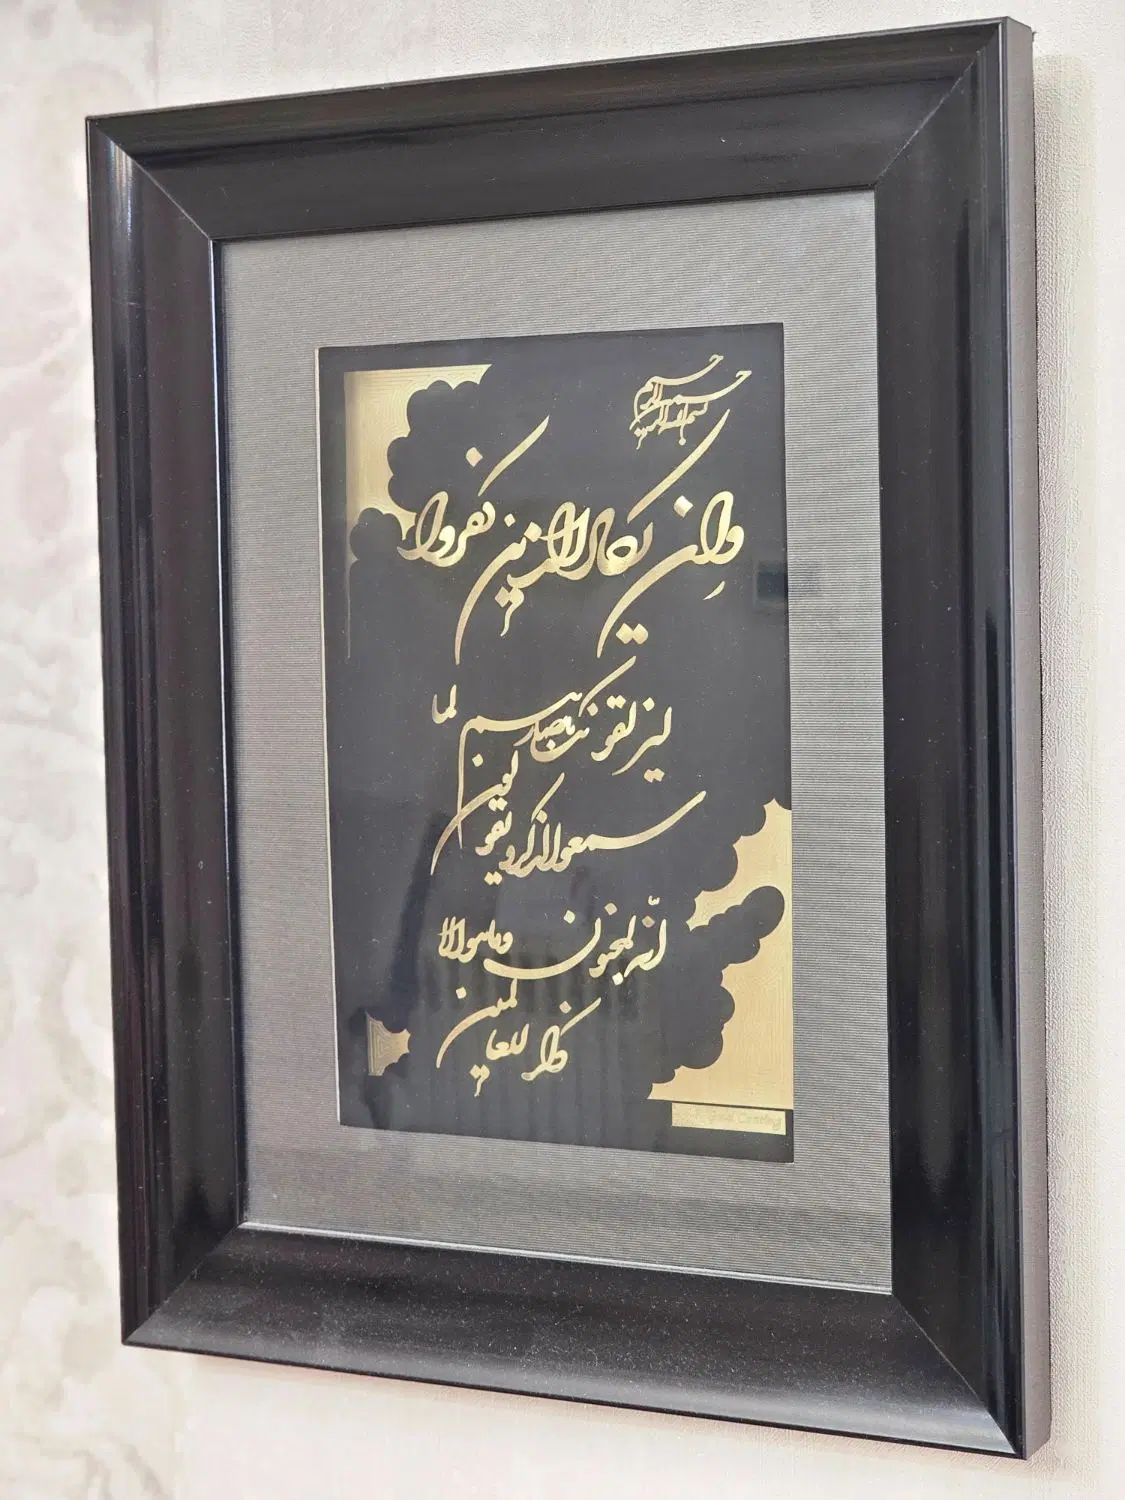 بسم الله الرحمن الرحیم
وان یکاد الذین کفروا
لیزلقونک بابصارهم لما
سمعوا الذکر و یقولون
انّه لمجنون و ما هو الا
ذکر للعالمین
Gold Coating